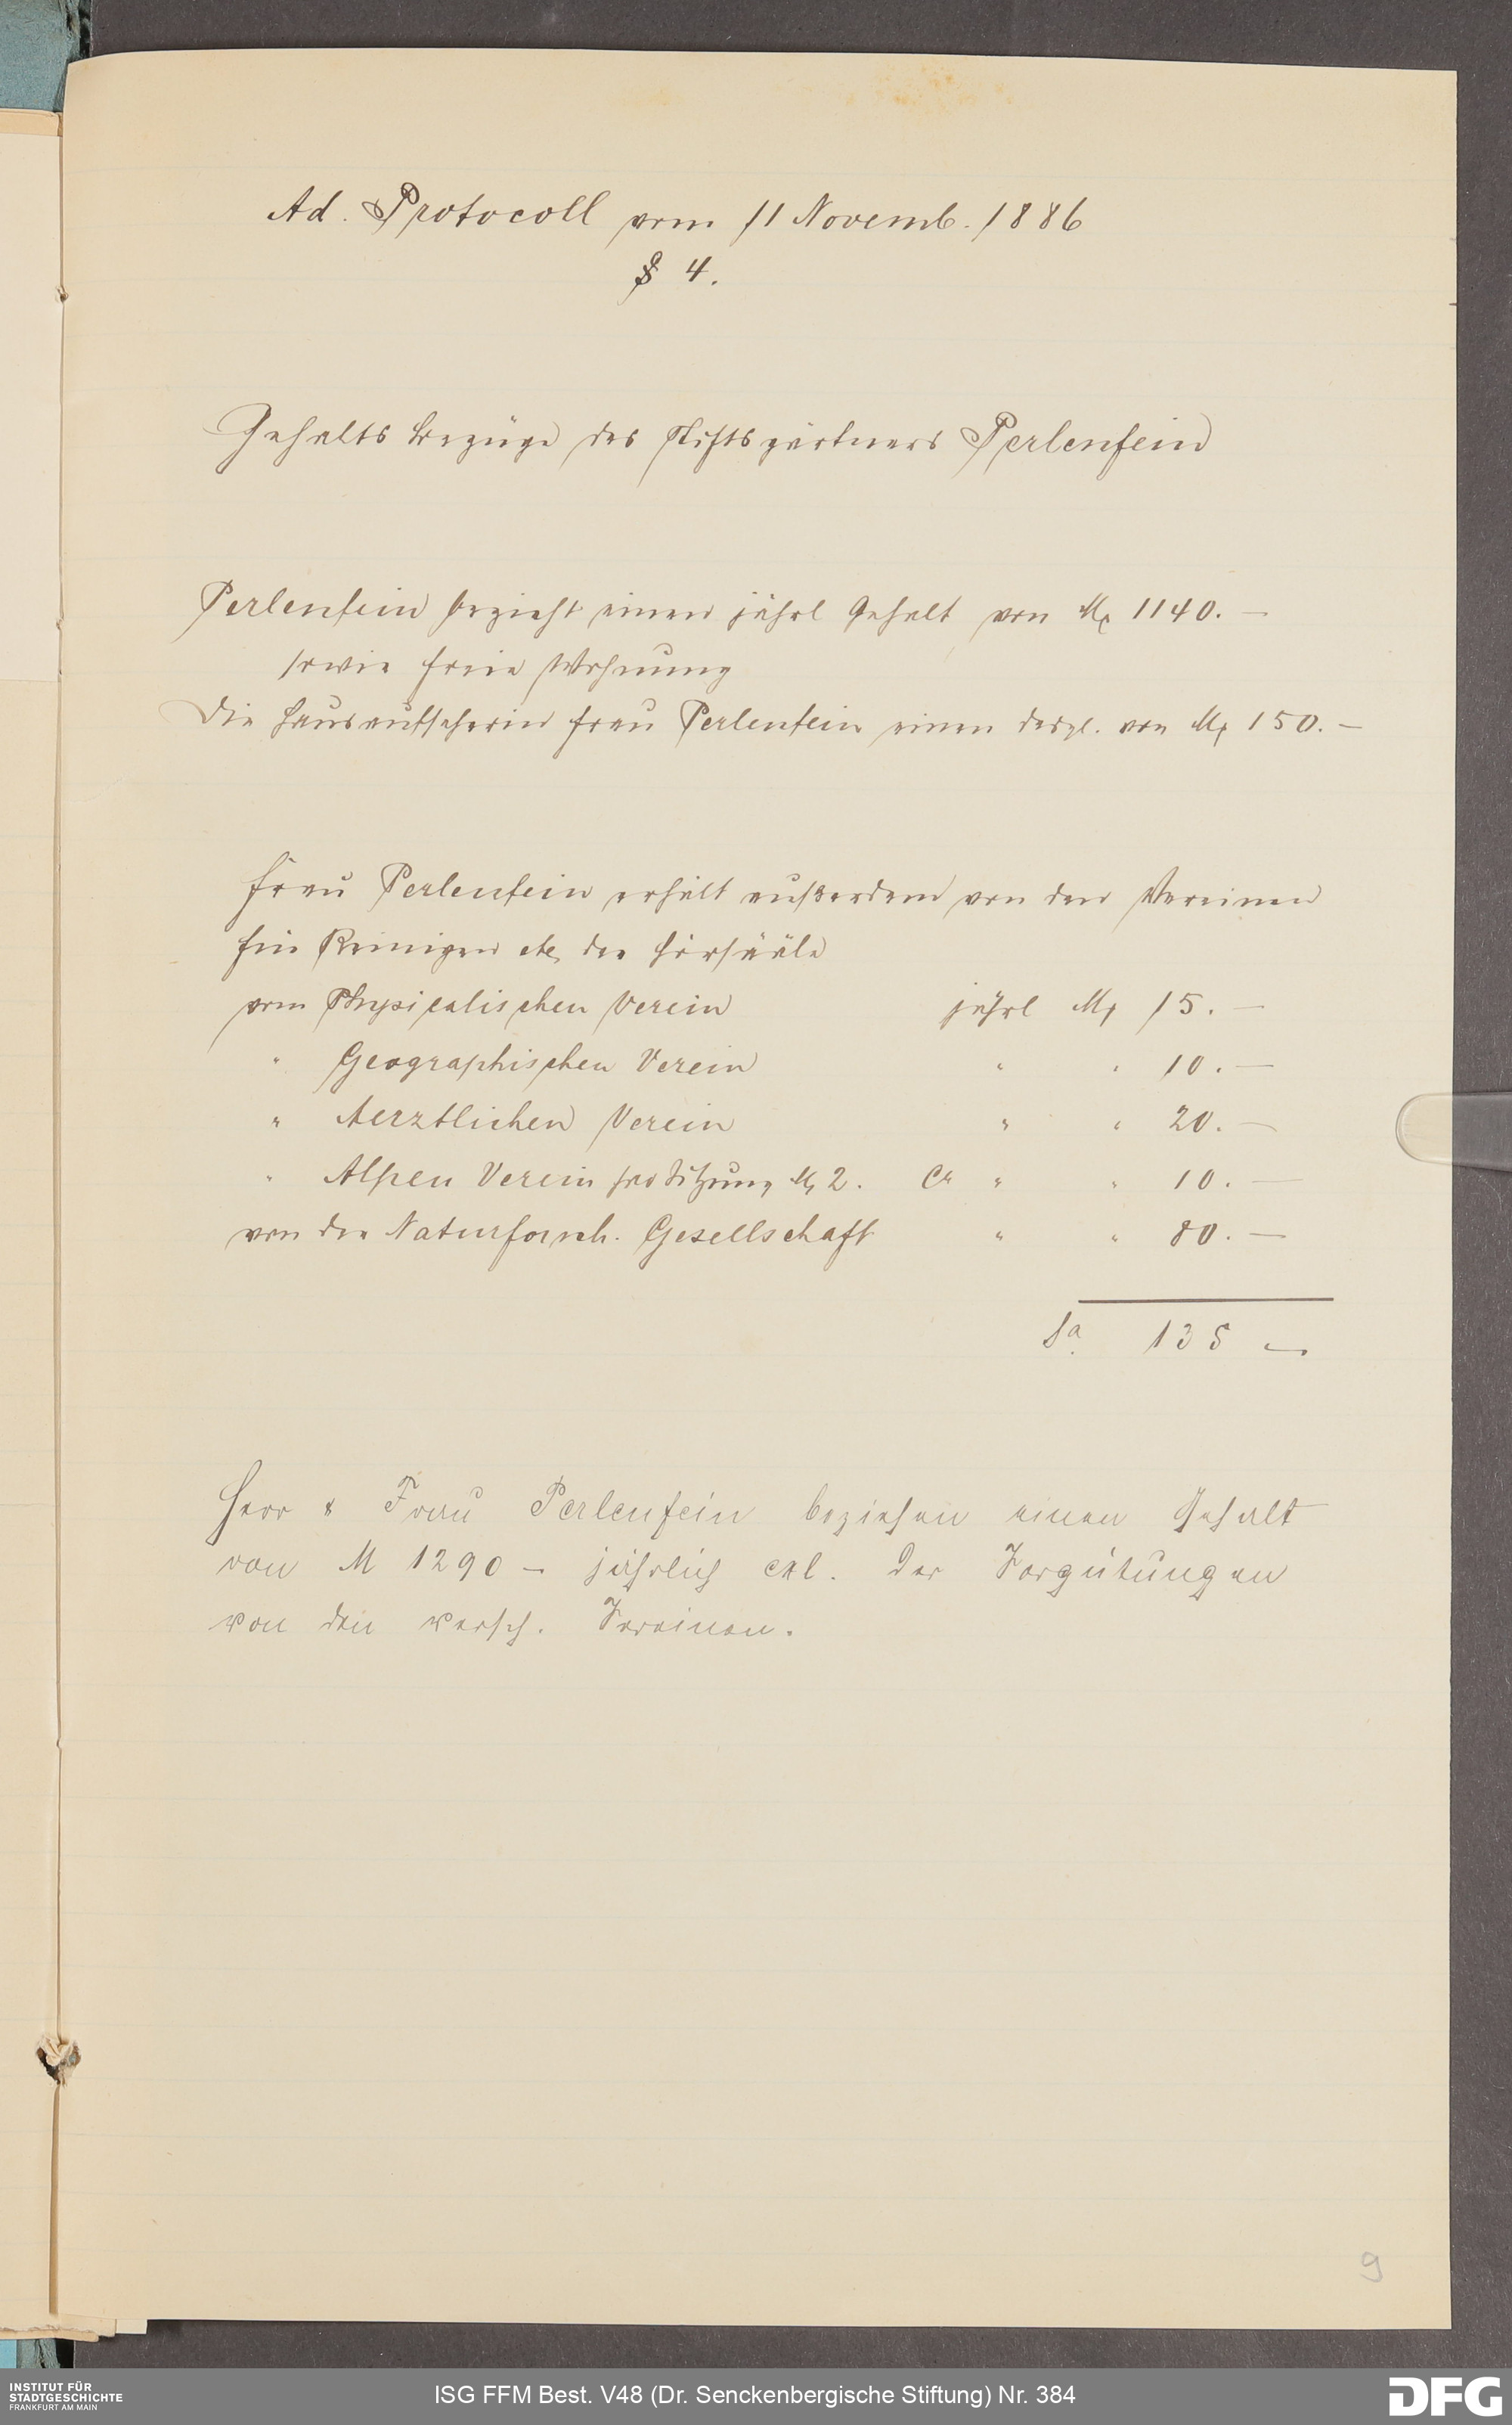 Ad. Protocoll vom 11 Novemb. 1886
§ 4.
Gehalts bezüge des Stiftsgärtners Perlenfein
Perlenfein bezieht einen jährl Gehalt von Mk 1140. —
sowie freie Wohnung
Die Hausaufseherin Frau Perlenfein einen desgl. von Mk 150. —
Frau Perlenfein erhält außerdem von den Vereinen
für Reinigen etc der Hörsääle
vom Physicalischen Verein jährl Mk 15. —
" Geographischen Verein " " 10. —
" Aerztlichen Verein " " 20. —
" Alpen Verein pro Sitzung Mk 2. Ca " " 10. —
von der Naturforsch. Gesellschaft " " 80. —
Sa. 135 —
Herr & Frau Perlenfein beziehen einen Gehalt
von M 1290 – jährlich exl. der Vergütungen
von den versch. Vereinen.
9
INSTITUT FÜR
STADTGESCHICHTE
FRANKFURT AM MAIN
ISG FFM Best. V48 (Dr. Senckenbergische Stiftung) Nr. 384
DFG